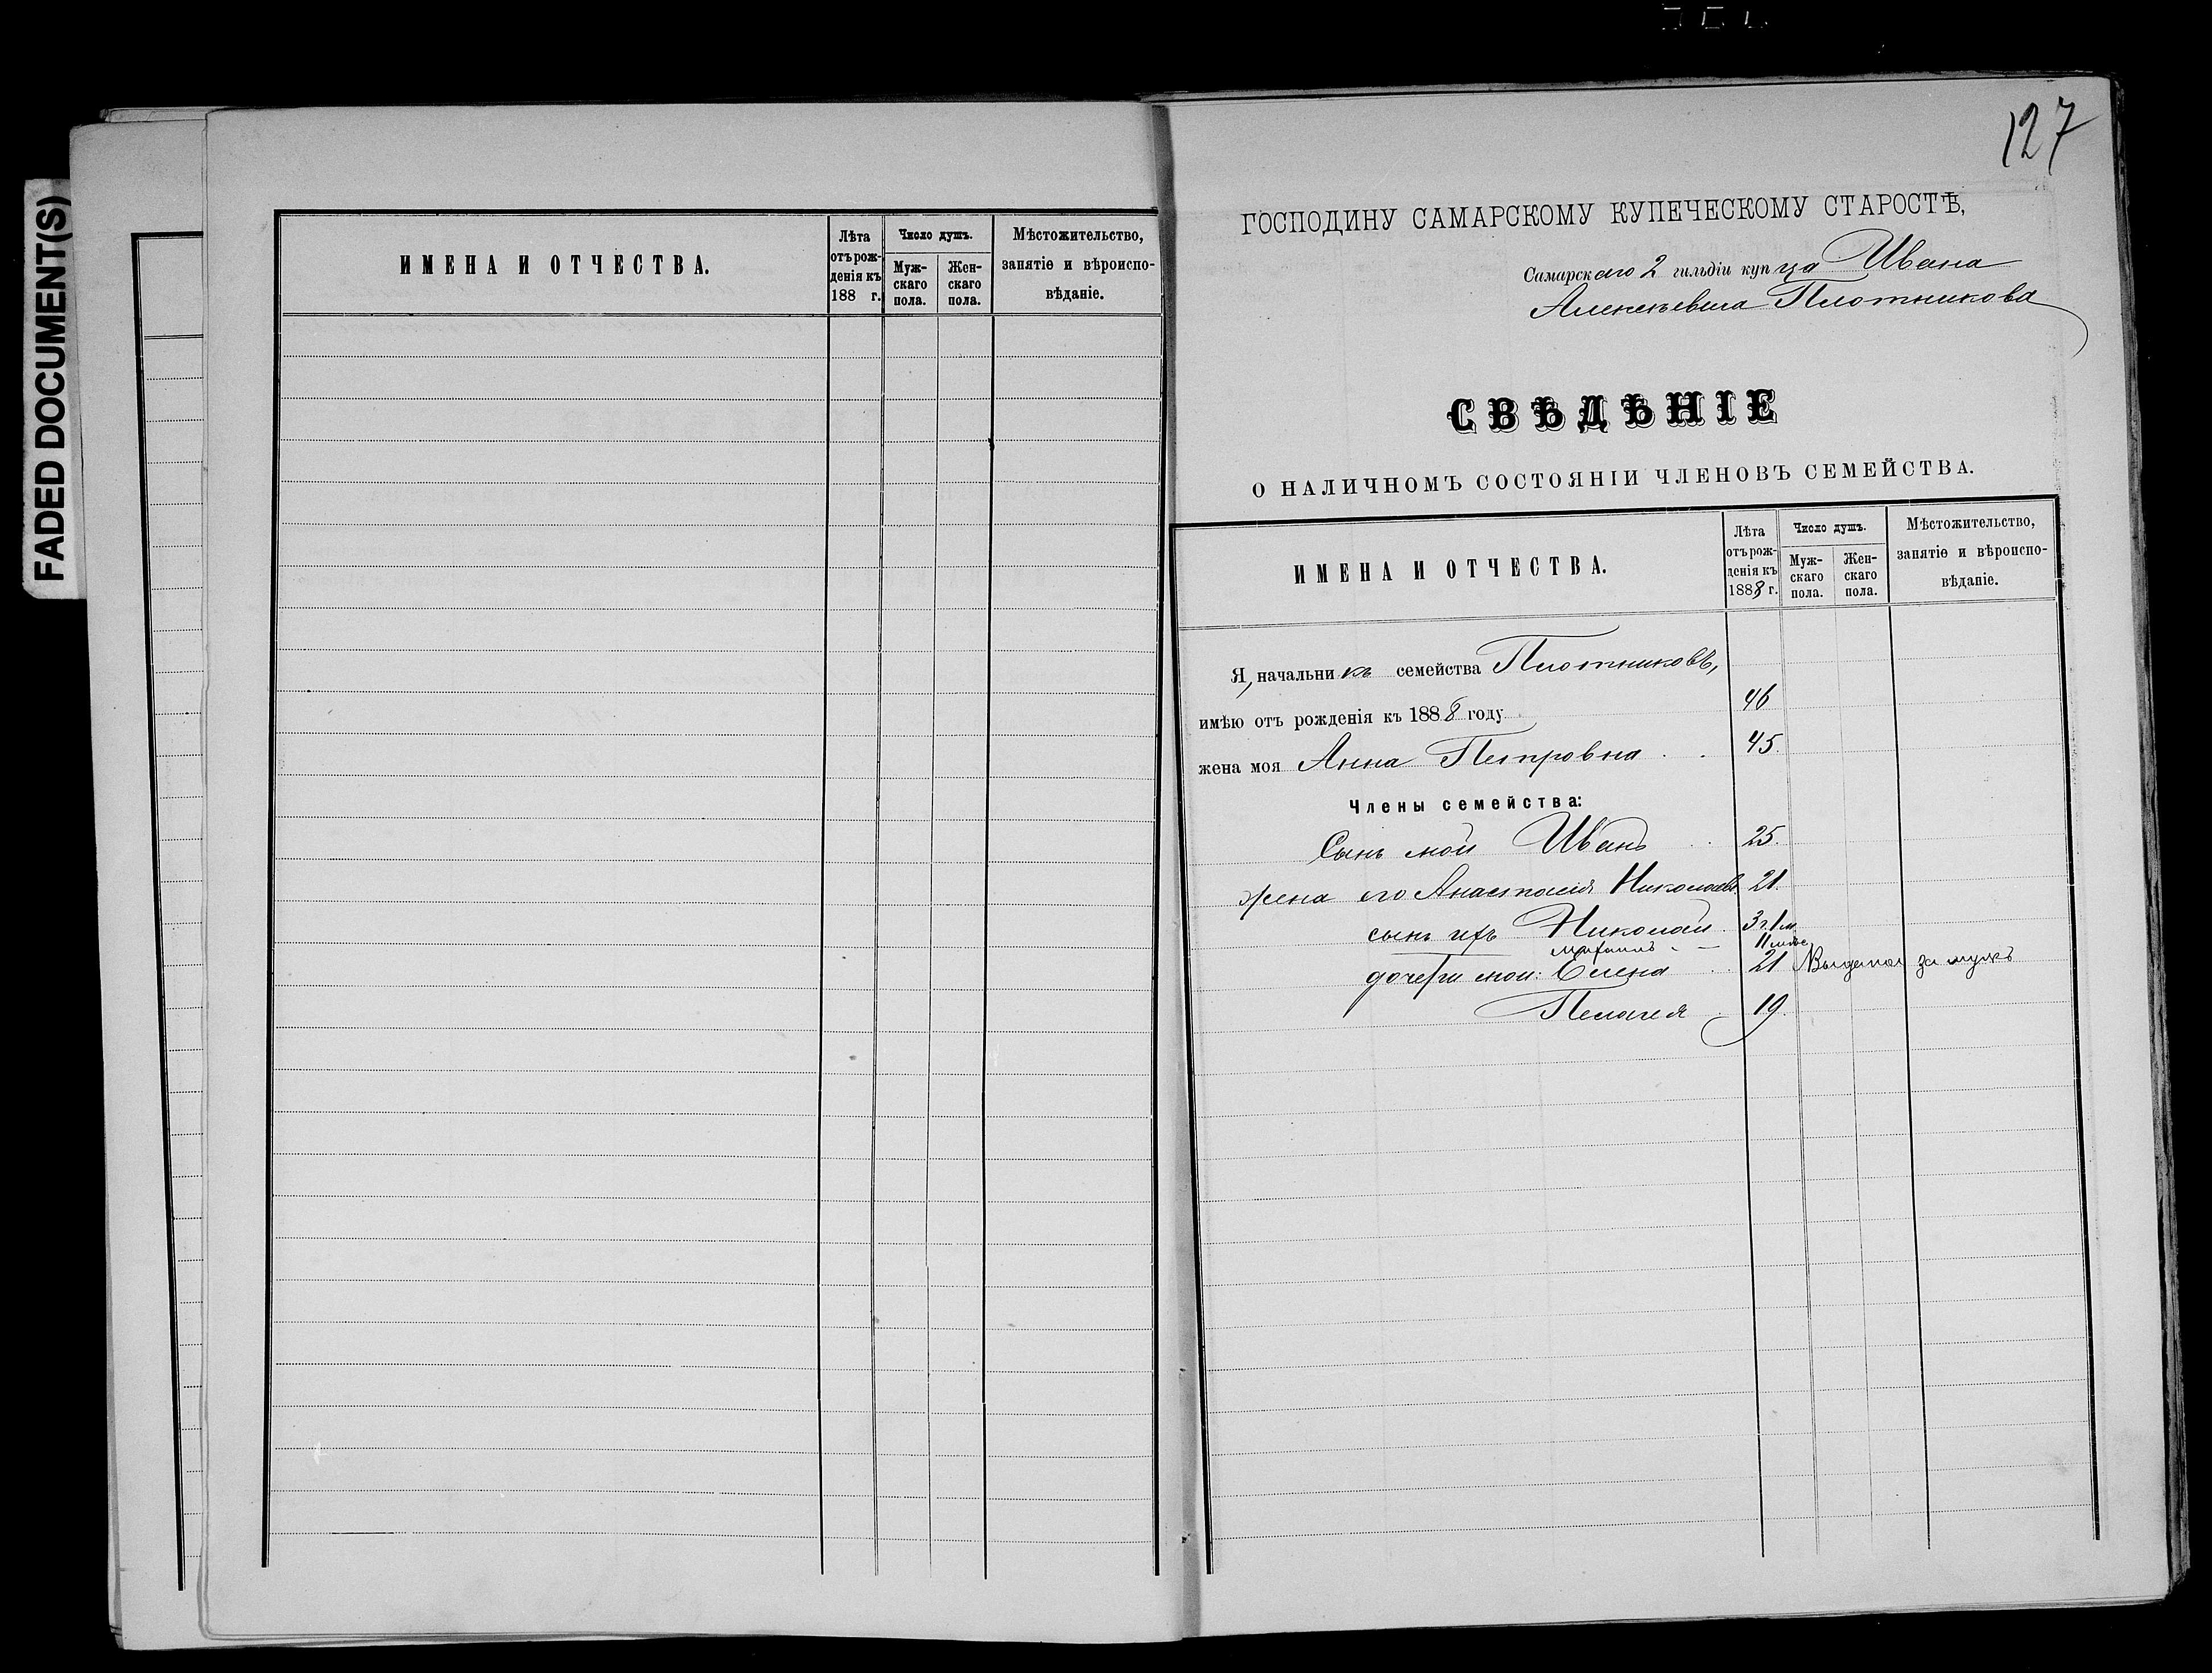 FADED DOCUMENT(S)
ИМЕНА И ОТЧЕСТВА.
Лѣта
отъ рож-
денія къ
188 г.
Число душъ.
Муж-
скаго
пола.
Жен-
скаго
пола.
Мѣстожительство,
занятіе и вѣроиспо-
вѣданіе.
127
ГОСПОДИНУ САМАРСКОМУ КУПЕЧЕСКОМУ СТАРОСТѢ,
Самарскаго 2 гильдіи купца Ивана
Алексѣевича Плотникова
СВѢДѢНІЕ
О НАЛИЧНОМЪ СОСТОЯНІИ ЧЛЕНОВЪ СЕМЕЙСТВА.
ИМЕНА И ОТЧЕСТВА.
Лѣта
отъ рож-
денія къ
1888 г.
Число душъ.
Муж-
скаго
пола.
Жен-
скаго
пола.
Мѣстожительство,
занятіе и вѣроиспо-
вѣданіе.
Я, начальникъ семейства Плотниковъ,
имѣю отъ рожденія къ 1888 году 46
жена моя Анна Петровна 45
Члены семейства:
Сынъ мой Иванъ 25
жена его Анастасія Николаевн 21
сынъ ихъ Николай 3 г. 1 м.
Михаилъ 11 мѣс
дочери мои: Елена 21 Выдана за мужъ
Пелагея 19